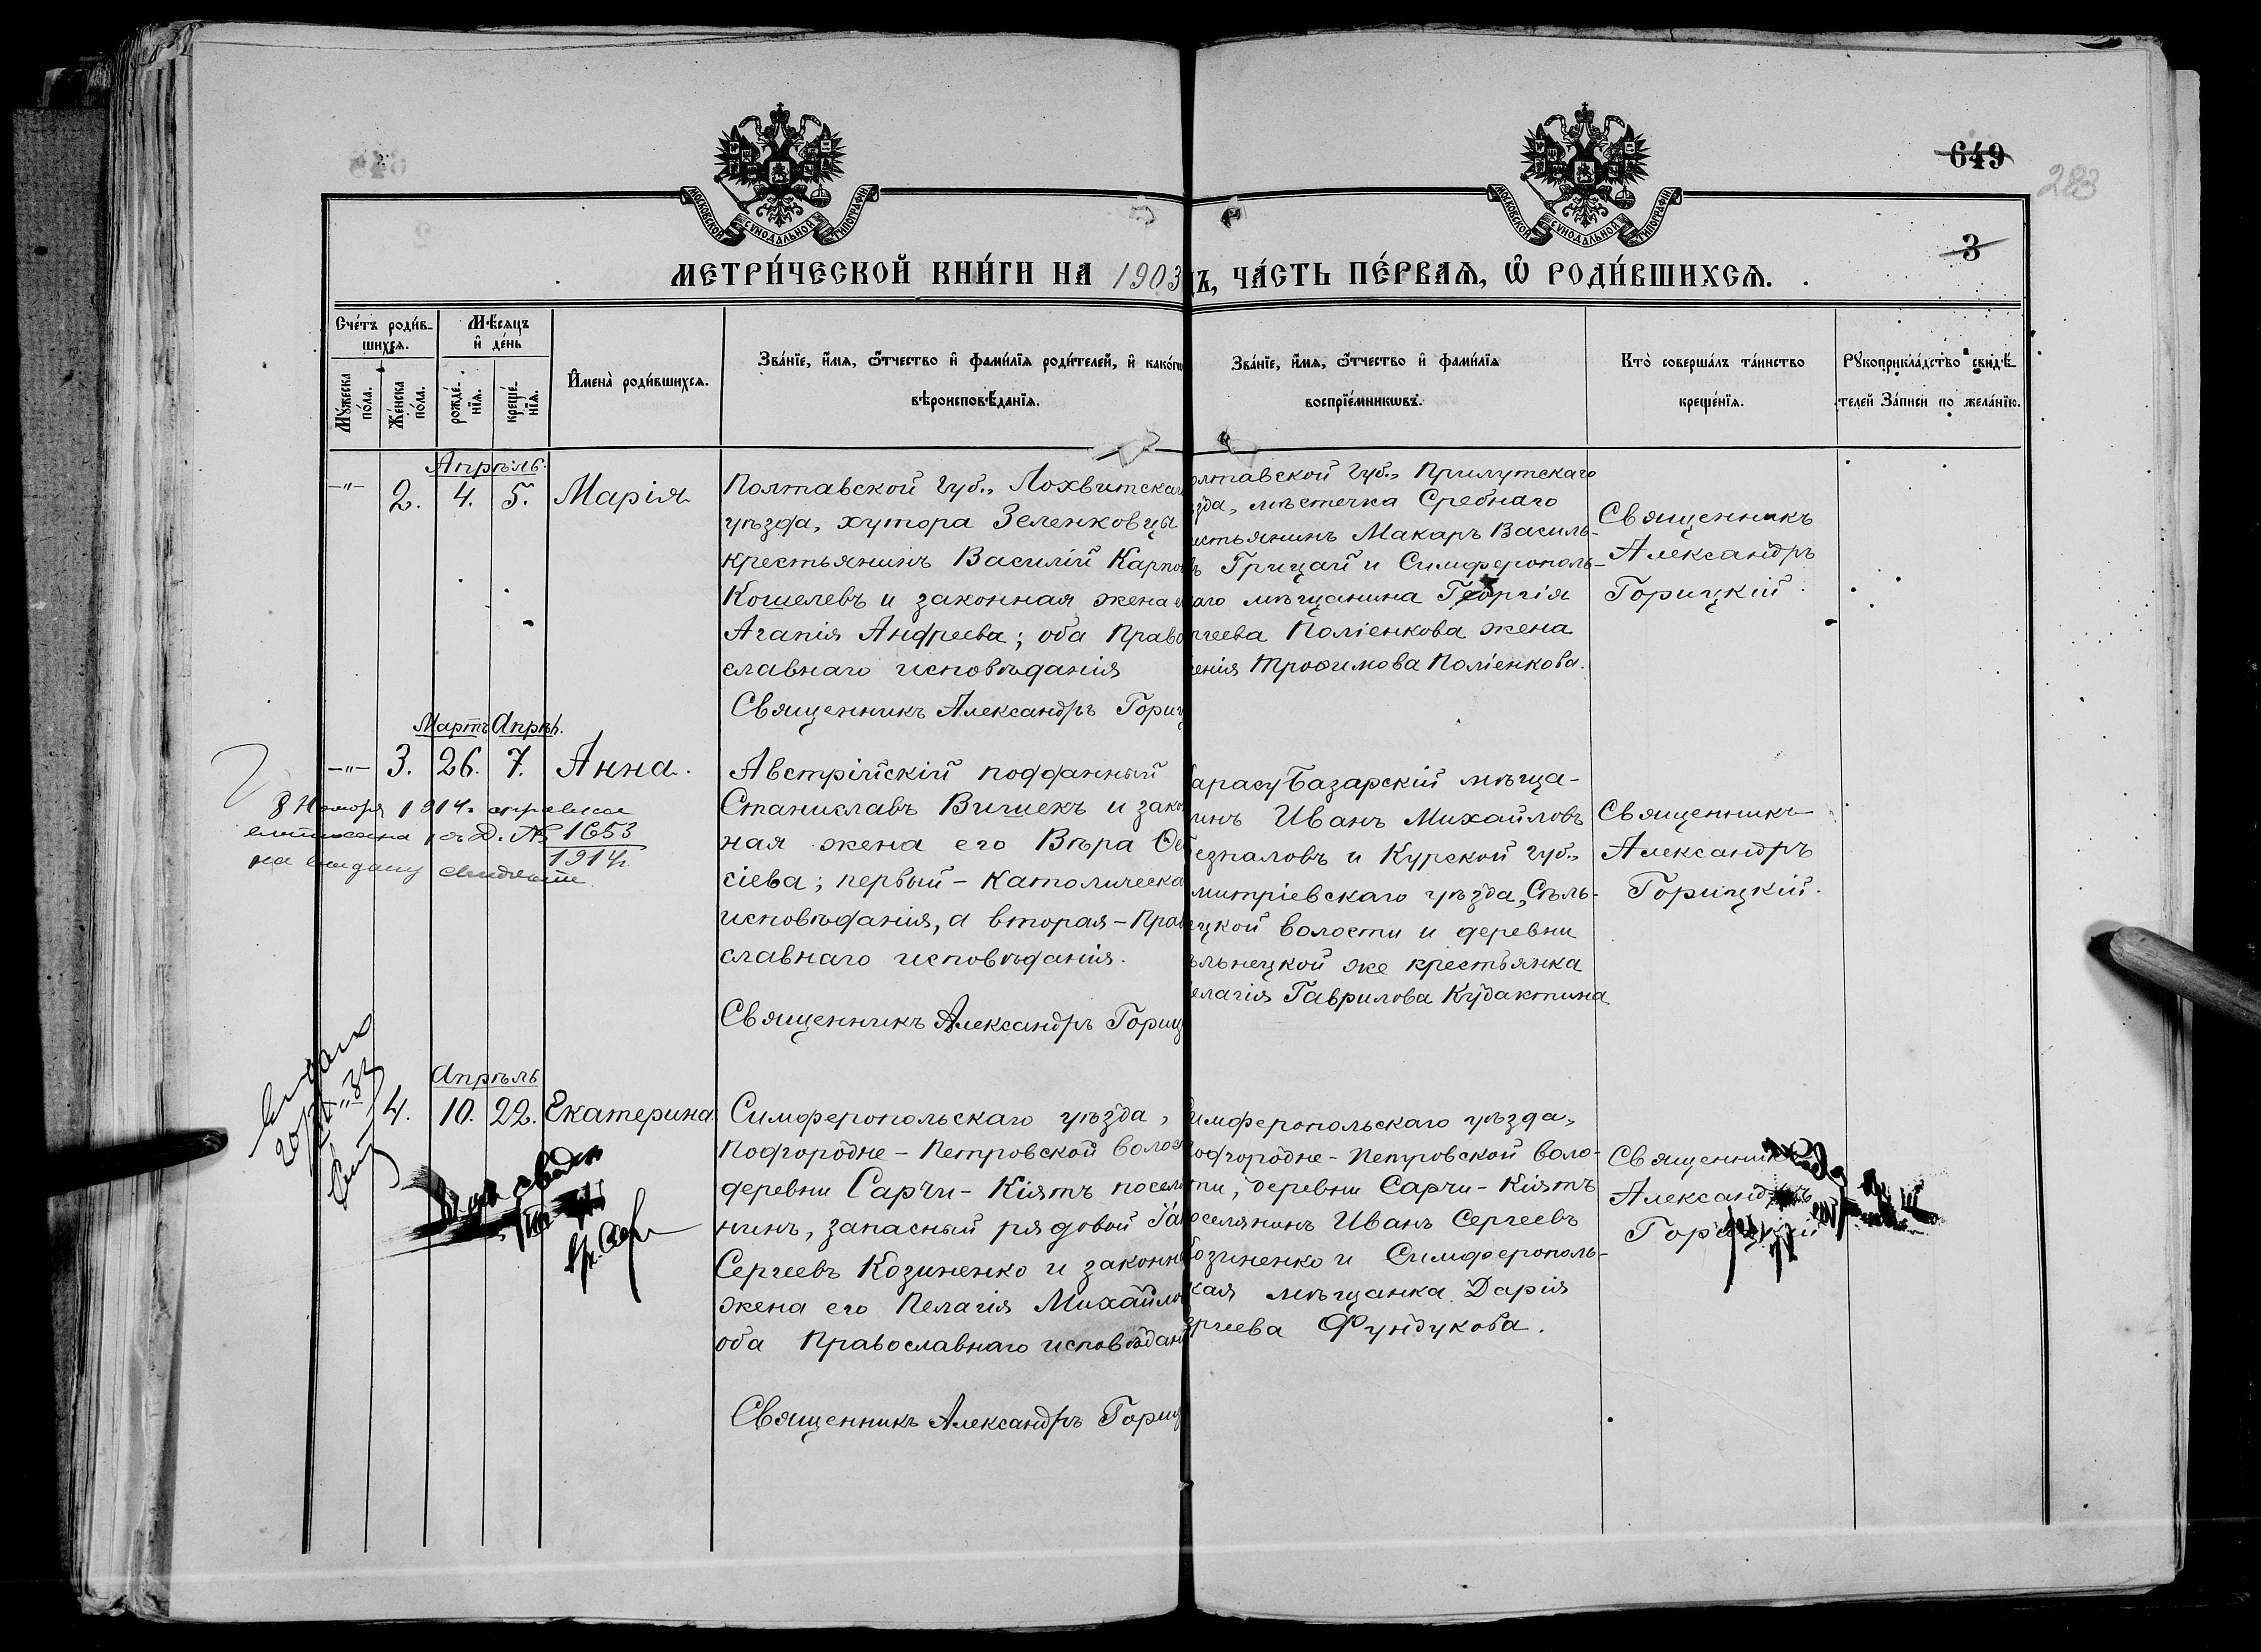 649
283
3
МОСКОВСКОЙ СУНОДАЛЬНОЙ ТИПОГРАФІИ
МОСКОВСКОЙ СУНОДАЛЬНОЙ ТИПОГРАФІИ
МЕТРИ́ЧЕСКОЙ КНИ́ГИ НА 1903
ДЪ, ЧА́СТЬ ПЕ́РВАѦ, Ѡ РОДИ́ВШИХСѦ.
Сче́тъ роди́в-
шихсѧ.
Мѣ́сѧцъ
и҆ де́нь
Мꙋ́жеска
по́ла.
Же́нска
по́ла.
рожде́-
нїѧ.
креще́-
нїѧ.
И҆мена̀ роди́вшихсѧ.
Зва́нїе, и҆́мѧ, ѻ҆́тчество и҆ фами́лїѧ роди́телей, и҆ како́гѡ
вѣроисповѣ́данїѧ.
Зва́нїе, и҆́мѧ, ѻ҆́тчество и҆ фами́лїѧ
воспрїе́мникѡвъ.
Кто̀ соверша́лъ та́инство
креще́нїѧ.
Рꙋкоприкла́дство свидѣ́-
телей За́писи по жела́нїю.
Апрѣль.
-"- 2. 4. 5. Марія
Полтавской Губ., Лохвитскаг
уѣзда, хутора Зеленковцы
крестьянинъ Василій Карпов
Кошелевъ и законная жена е
Агапія Андреева; оба Право
славнаго исповѣданія
Священникъ Александръ Гориц
олтавской Губ., Прилутскаго
зда, мѣстечка Сребнаго
естьянинъ Макаръ Василь-
въ Грицай и Симферополь-
каго мѣщанина Георгія
ргеева Поліенкова жена
енія Трофимова Поліенкова.
Священникъ
Александръ
Горицкій
Мартъ Апрѣл.
-"- 3. 26. 7. Анна.
8 Ноября 1914г. справка
дъ Д. № 1653
1914г.
на выдачу
Австрійскій подданный
Станиславъ Вишекъ и зако
ная жена его Вѣра Ѳео
сіева; первый - католическа
исповѣданія, а вторая - Прав
славнаго исповѣданія.
Священникъ Александръ Гориц
арасубазарскій мѣща-
инъ Иванъ Михайловъ
езпаловъ и Курской Губ.,
митріевскаго уѣзда, Сѣль-
ецкой волости и деревни
ѣльнецкой же крестьянка
елагія Гаврилова Кудактина
Священникъ
Александръ
Горицкій.
Апрѣль
4. 10. 22. Екатерина.
Симферопольскаго уѣзда,
Подгородне - Петровской волос
деревни Сарчи - Кіятъ посел
нинъ, запасный рядовой Іак
Сергеевъ Козиненко и законна
жена его Пелагія Михайлов
оба Православнаго исповѣдан
Священникъ Александръ Гориц
имферопольскаго уѣзда,
одгородне - Петровской воло-
ти, деревни Сарчи - Кіятъ
оселянинъ Иванъ Сергеевъ
озиненко и Симферополь-
кая мѣщанка Дарія
ергеева Фундукова.
Священник
Александръ
Горицкій